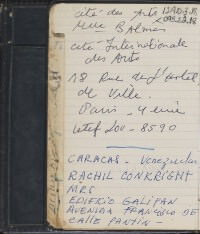 cité-des Arts
Mme Balmes
cité-Internationale
des Arts
18 Rue de l'Hotel
de Ville.
Paris - 4 eme
CARACAS - Venezuela
RACHIL CONKRIGHT
MRS
EDIFICIO GALIPAN
AVENIDA FRANCISCO DE
CALLE PANTIN -